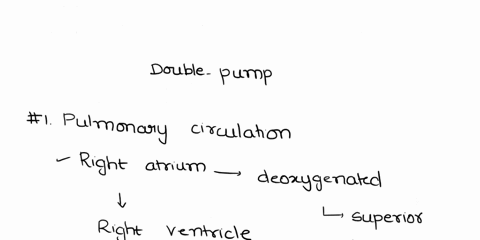 Double-pump
#1. Pulmonary circulation
– Right atrium → deoxygenated
↓ ↳ superior
Right ventricle